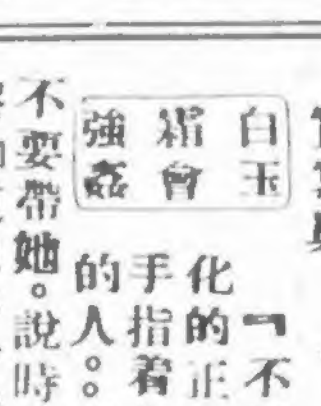 白玉
霜會
強姦
『不
化的正
手指着
的人。。
不要帶她。說時